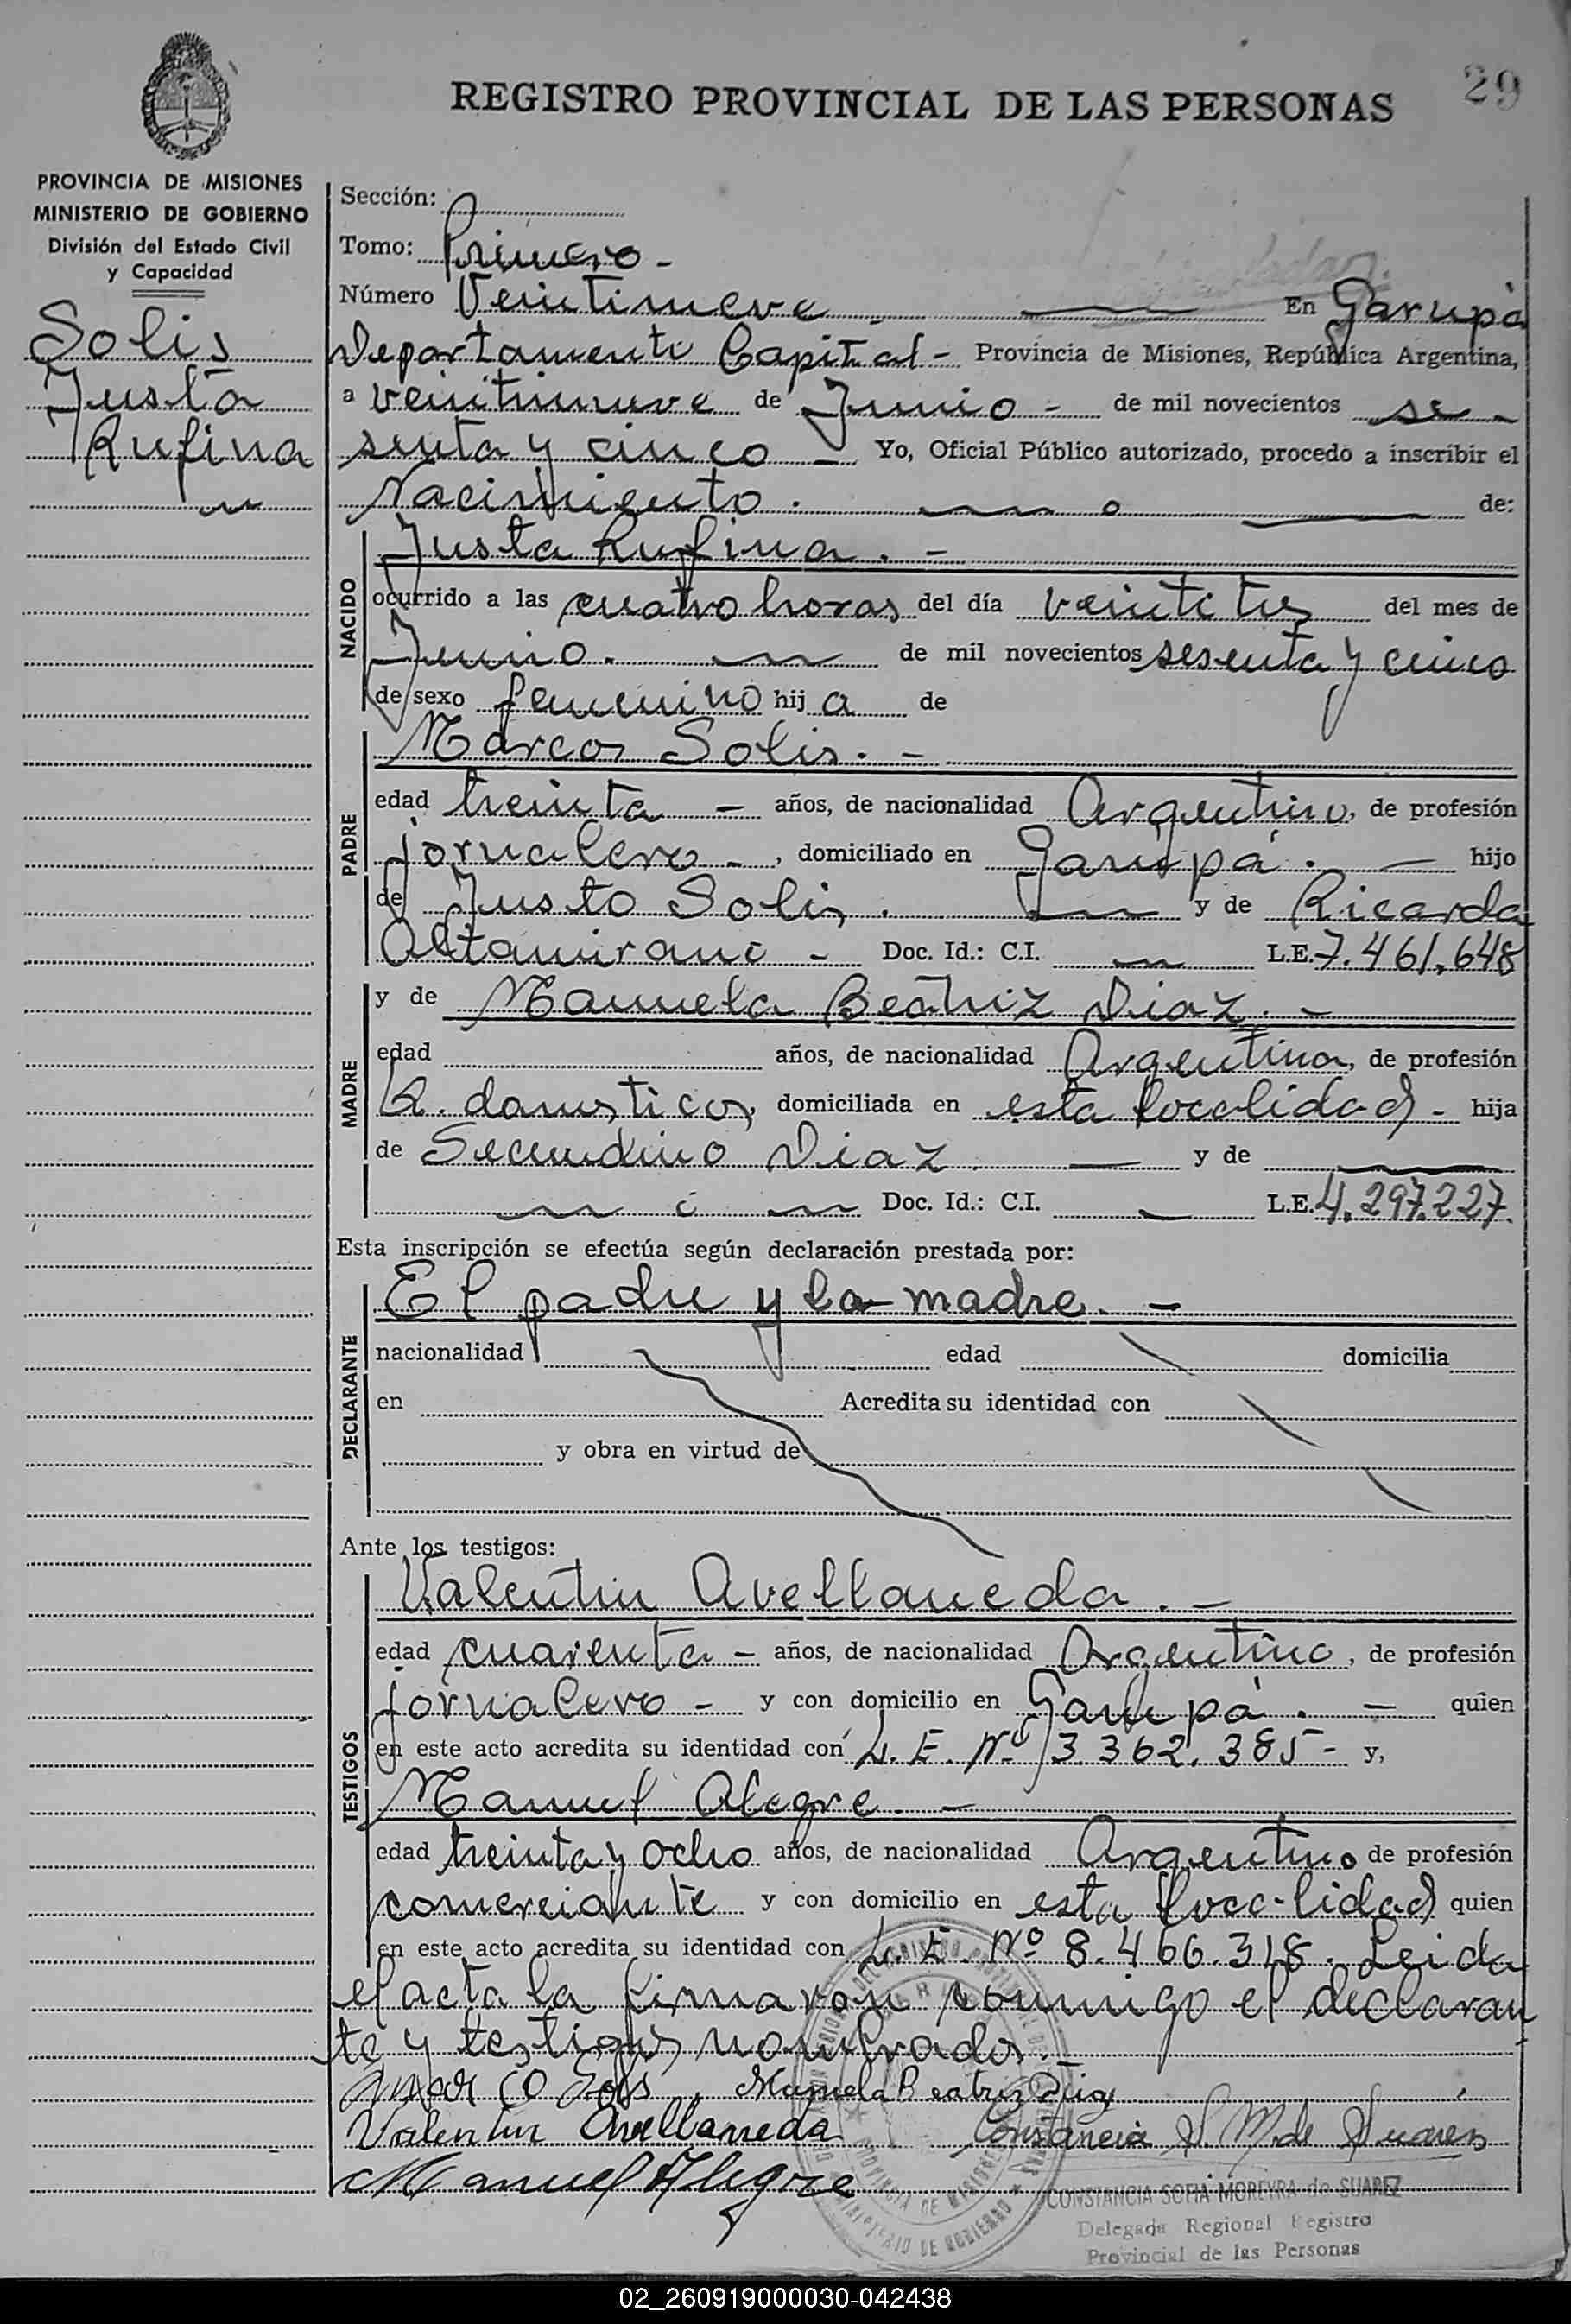 29
REGISTRO PROVINCIAL DE LAS PERSONAS
PROVINCIA DE MISIONES
MINISTERIO DE GOBIERNO
División del Estado Civil
y Capacidad
Solis
Justa
Rufina
Sección:
Tomo: Primero -
Número Veintinueve - En Garupá
Departamento Capital - Provincia de Misiones, República Argentina,
a veintinueve de Junio - de mil novecientos se -
senta y cinco - Yo, Oficial Público autorizado, procedo a inscribir el
Nacimiento. de:
NACIDO
Justa Rufina. -
ocurrido a las cuatro horas del día veinte tres del mes de
Junio. de mil novecientos sesenta y cinco
de sexo femenino hij a de
PADRE
Marcos Solis. -
edad treinta - años, de nacionalidad Argentino, de profesión
jornalero -, domiciliado en Garupá. - hijo
de Justo Solis. y de Ricarda
Altamirano - Doc. Id.: C.I. L.E. 7.461,648
MADRE
y de Manuela Beatriz Diaz. -
edad años, de nacionalidad Argentina, de profesión
Q. domesticos, domiciliada en esta localidad - hija
de Secundino Diaz. y de
Doc. Id.: C.I. L.E. 4.297.227.
Esta inscripción se efectúa según declaración prestada por:
DECLARANTE
El padre y la madre. -
nacionalidad edad domicilia
en Acredita su identidad con
y obra en virtud de
Ante los testigos:
TESTIGOS
Valentin Avellaneda. -
edad cuarenta - años, de nacionalidad Argentino, de profesión
jornalero - y con domicilio en Garupá. - quien
en este acto acredita su identidad con L. E. Nº 3 362. 385 - y,
Manuel Alegre. -
edad treinta y ocho años, de nacionalidad Argentino de profesión
comerciante y con domicilio en esta localidad quien
en este acto acredita su identidad con L. E. Nº 8.466.318. Leida
el acta la firmaron conmigo el declaran
te y testigos nombrados. -
Marco Solis Manuela Beatriz Diaz
Valentin Avellaneda Constancia S. M. de Suarez
Manuel Alegre
CONSTANCIA SOFIA MOREYRA de SUAREZ
Delegada Regional Registro
Provincial de las Personas
02_260919000030-042438